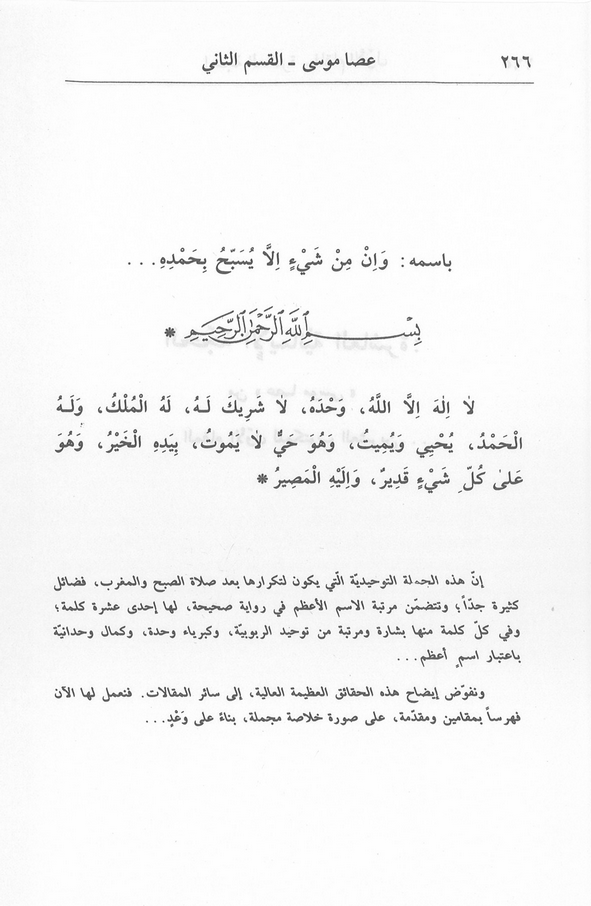 ٢٦٦
عصا موسى - القسم الثاني
باسمه: وَاِنْ مِنْ شَيْءٍ اِلَّا يُسَبِّحُ بِحَمْدِهِ...
بِسْمِ اللّٰهِ الرَّحْمٰنِ الرَّحِيمِ *
لَا اِلٰهَ اِلَّا اللّٰهُ، وَحْدَهُ، لَا شَرِيكَ لَـهُ، لَهُ الْمُلْكُ، وَلَـهُ
الْحَمْدُ، يُحْيِي وَيُمِيتُ، وَهُوَ حَيٌّ لَا يَمُوتُ، بِيَدِهِ الْخَيْرُ، وَهُوَ
عَلٰى كُلِّ شَيْءٍ قَدِيرٌ، وَاِلَيْهِ الْمَصِيرُ *
إنّ هذه الجملة التوحيديّة الّتي يكون لتكرارها بعد صلاة الصبح والمغرب، فضائل
كثيرة جدّاً؛ وتتضمّن مرتبة الاسم الأعظم في رواية صحيحة، لها إحدى عشرة كلمة؛
وفي كلّ كلمة منها بشارة ومرتبة من توحيد الربوبيّة، وكبرياء وحدة، وكمال وحدانيّة
باعتبار اسمٍ أعظم...
ونفوّض إيضاح هذه الحقائق العظيمة العالية، إلى سائر المقالات. فنعمل لها الآن
فهرساً بمقامين ومقدّمة، على صورة خلاصة مجملة، بناءً على وَعْدٍ...